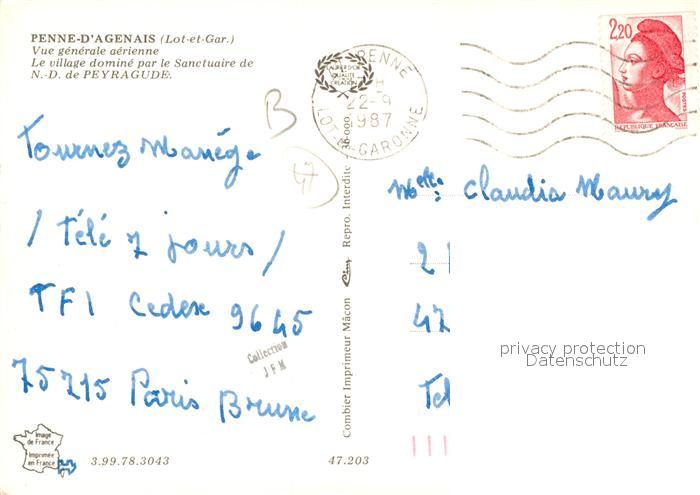 PENNE-D'AGENAIS (Lot-et-Gar.)
Vue générale aérienne
Le village dominé par le Sanctuaire de
N.-D. de PEYRAGUDE.
B
47
Tournez Manège
/ Télé 7 jours /
TF1 Cedex 9645
75215 Paris Brune
Collection
J F M
Image
de France
Imprimée
en France
3.99.78.3043
47.203
Combier Imprimeur Mâcon Cim Repro. Interdite
PENNE
22-9
1987
LOT-ET-GARONNE
LAURIER D'OR
QUALITÉ
CRÉATION
2,20
POSTES
REPUBLIQUE FRANÇAISE
Melle: Claudia Maury
2
47
privacy protection
Datenschutz